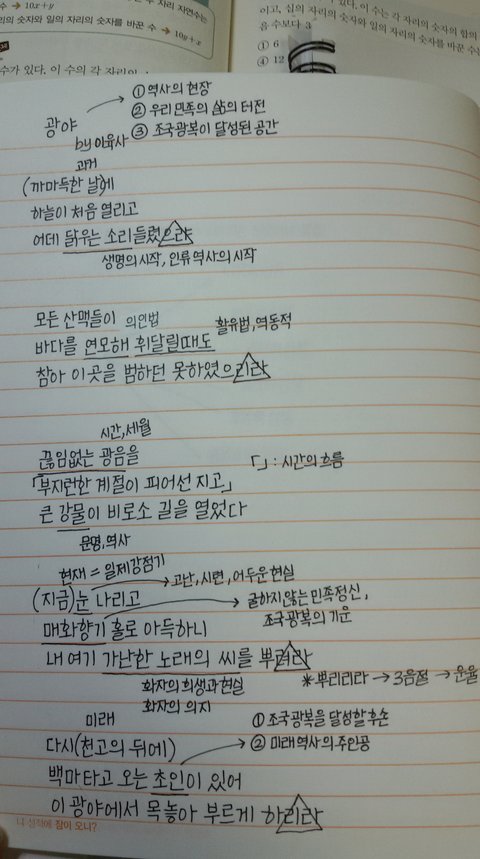 수 → 10x+y
리의 숫자와 일의 자리의 숫자를 바꾼 수 → 10y+x
수가 있다. 이 수의 각 자리의
이고, 십의 자리의 숫자와 일의 자리의 숫자를 바꾼 수는
음 수보다 3
① 6
④ 12
광야
① 역사의 현장
② 우리 민족의 삶의 터전
③ 조국광복이 달성된 공간
by 이육사
과거
(까마득한 날)에
하늘이 처음 열리고
어데 닭우는 소리들렸으랴
생명의 시작, 인류 역사의 시작
모든 산맥들이 의인법
활유법, 역동적
바다를 연모해 휘달릴때도
참아 이곳을 범하던 못하였으리라
시간, 세월
끊임없는 광음을
「」: 시간의 흐름
「부지런한 계절이 피어선 지고」
큰 강물이 비로소 길을 열었다
문명, 역사
현재 = 일제강점기
고난, 시련, 어두운 현실
(지금) 눈 나리고
굴하지 않는 민족정신,
조국 광복의 기운
매화향기 홀로 아득하니
내 여기 가난한 노래의 씨를 뿌려라
*뿌리리라 → 3음절 → 운율
화자의 희생과 현실
화자의 의지
미래
① 조국광복을 달성할 후손
다시 (천고의 뒤에)
② 미래 역사의 주인공
백마타고 오는 초인이 있어
이 광야에서 목놓아 부르게 하리라
니 성적에 잠이 오니?